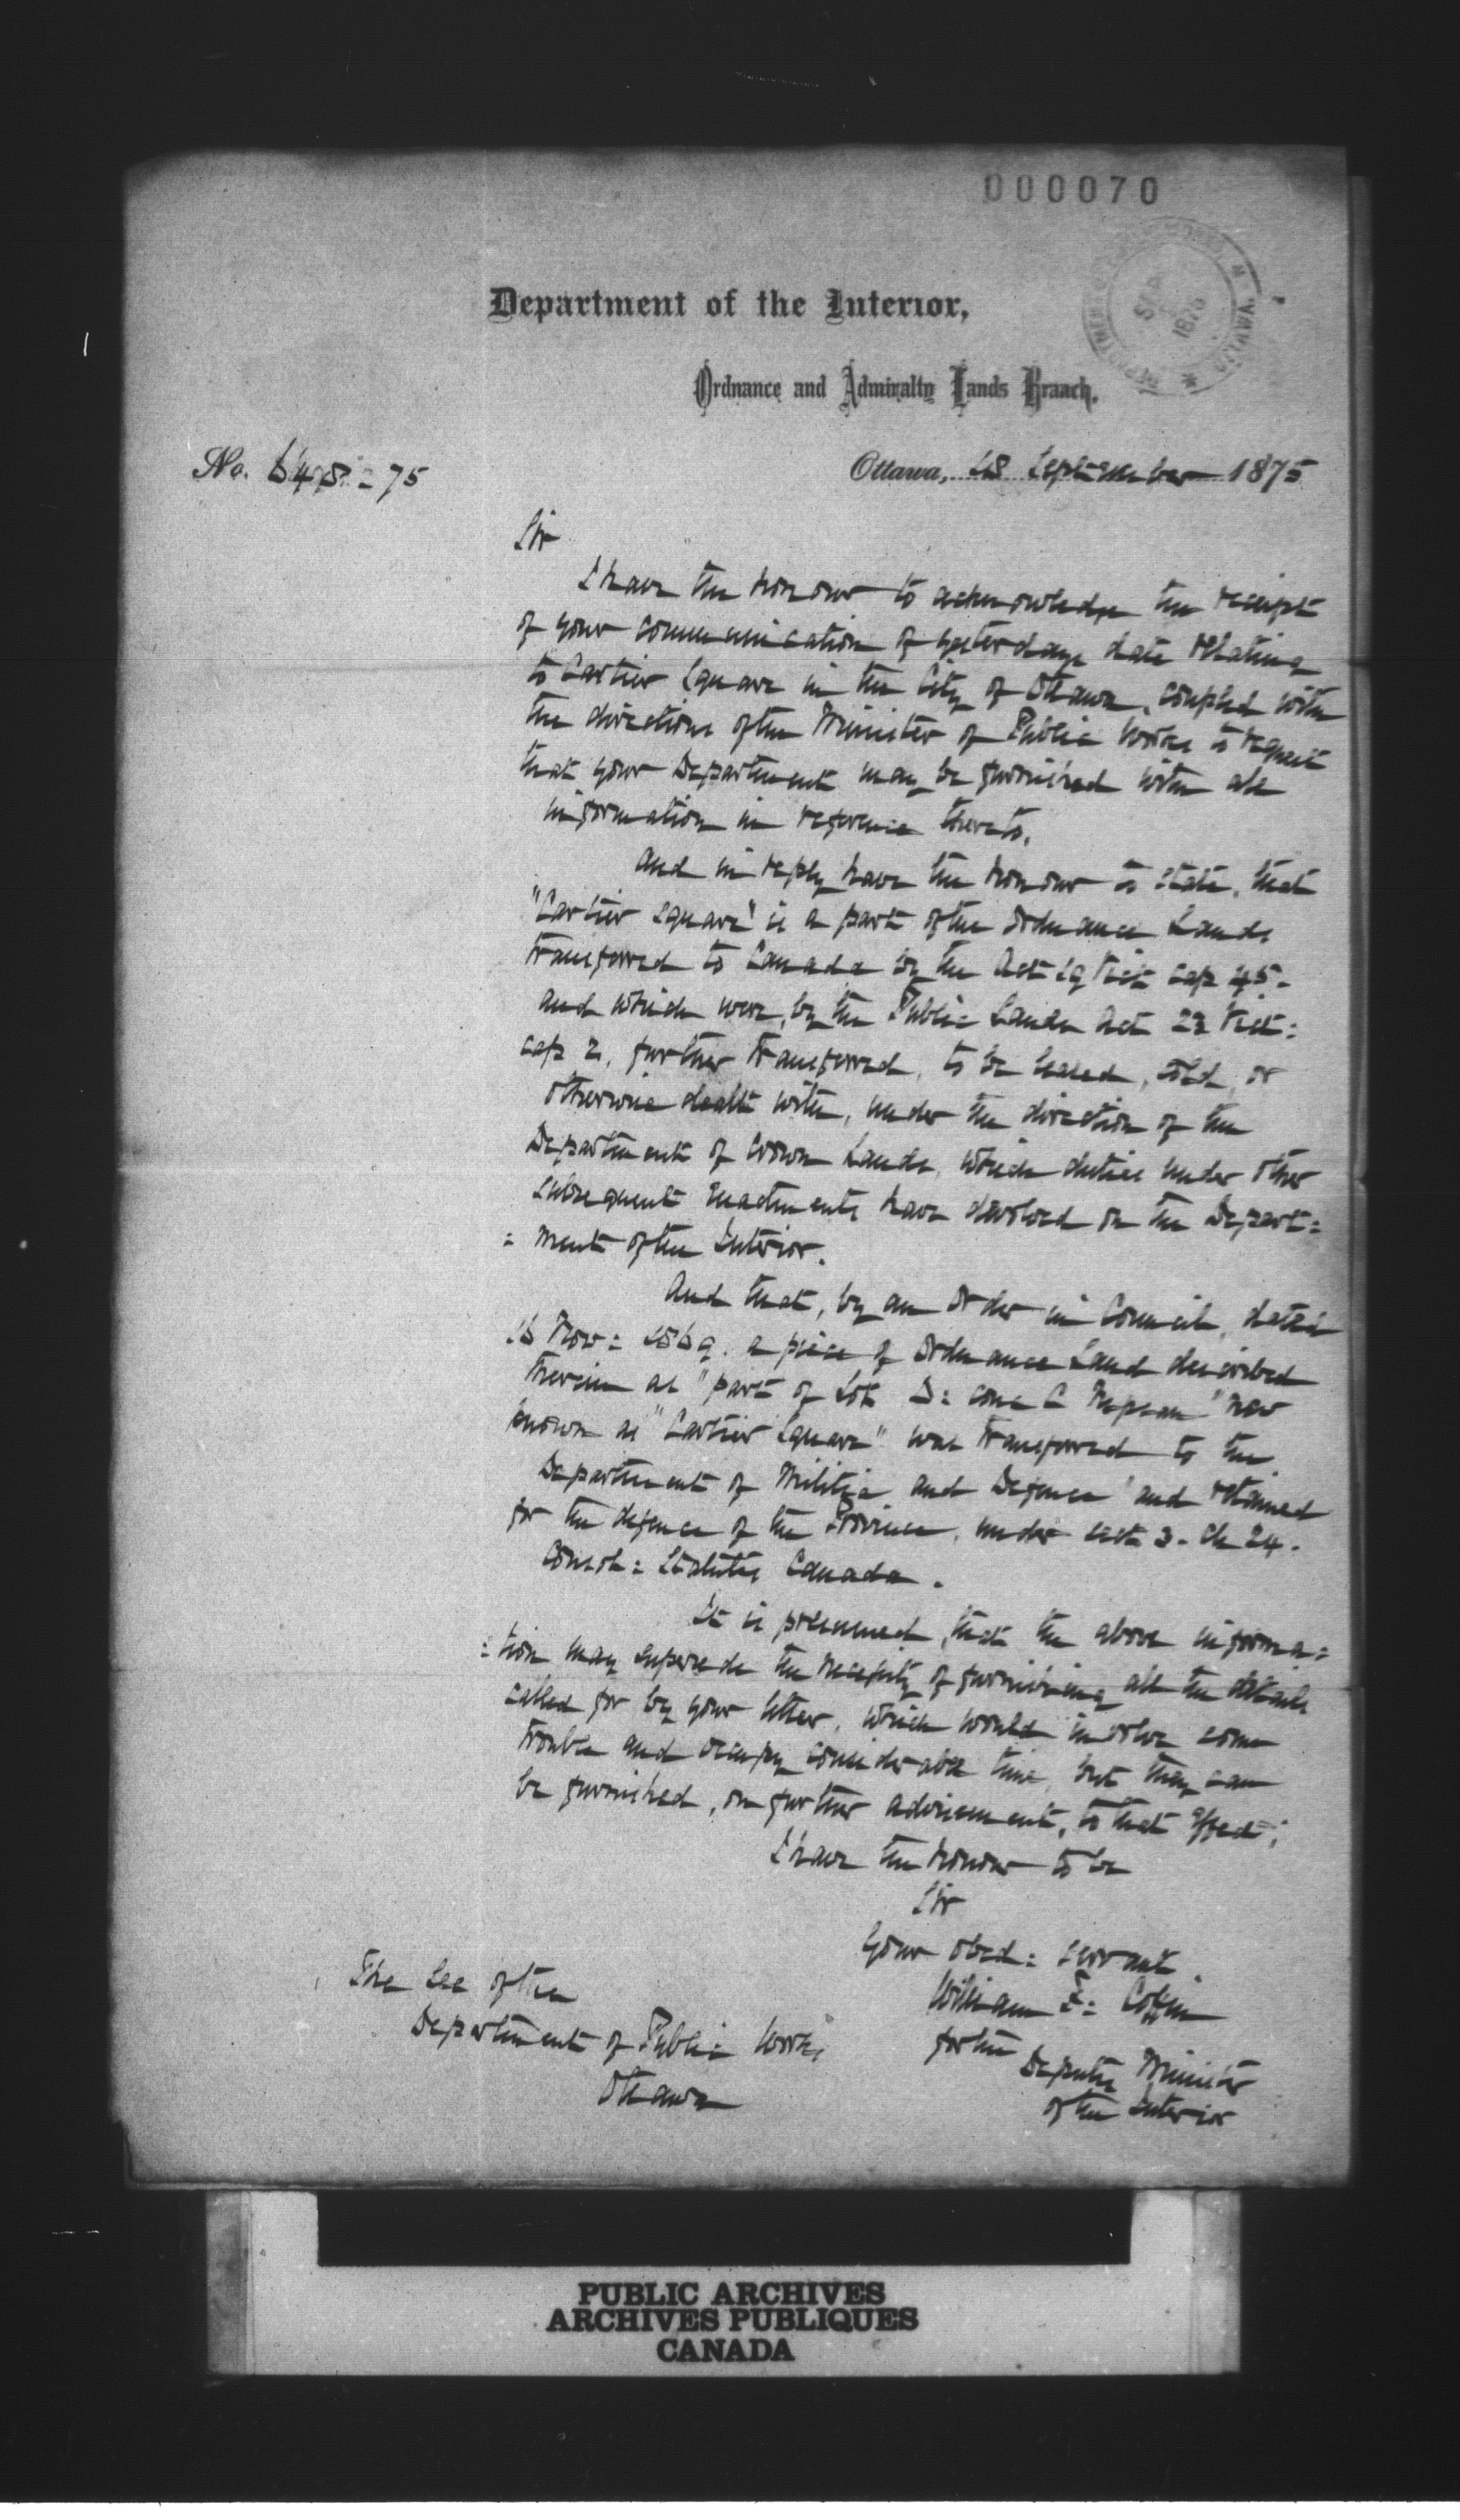 000070
Department of the Interior,
Ordnance and Admiralty Lands Branch.
SEP 1875
OTTAWA
No. 648 = 75
Ottawa, 18 September 1875
Sir
I have the honour to acknowledge the receipt
of your communication of yesterdays date relating
to Cartier Square in the City of Ottawa, coupled with
the directions of the Minister of Public Works to request
that your Department may be furnished with all
information in reference thereto.
And in reply have the honour to state, that
"Cartier Square" is a part of the Ordnance Lands
transferred to Canada by the Act 19 Vict cap 45 -
and which were, by the Public Lands Act 23 Vict:
cap 2, further transferred, to be leased, sold, or
otherwise dealt with, under the direction of the
Department of Crown Lands, which duties under other
subsequent enactments have devolved on the Depart:
: ment of the Interior.
And that, by an Order in Council, dated
Nov: 1869. a piece of Ordnance Land described
therein as "part of Lot D: conc C Nepean" now
known as "Cartier Square" was transferred to the
Department of Militia and Defence and retained
for the defence of the Province, under sect 3 - Ch 24 -
Consol: Statutes Canada.
It is presumed, that the above informa:
:tion may supersede the necessity of furnishing all the details
called for by your letter, which would involve some
trouble and occupy considerable time, but they can
be furnished, on further advisement, to that effect;
I have the honour to be
Sir
Your obed: servant
William F: Coffin
for the Deputy Minister
of the Interior
The Sec of the
Department of Public Works
Ottawa
PUBLIC ARCHIVES
ARCHIVES PUBLIQUES
CANADA